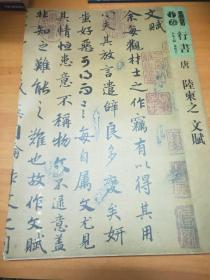 行書
唐
陸柬之
文賦
文賦
余每觀材士之作竊有以得其用
心夫其放言遣辭良多變矣妍
蚩好惡可得而言每自屬文尤見
其情恒患意不稱物文不逮意蓋
非知之難能之難也故作文賦
論作文之利